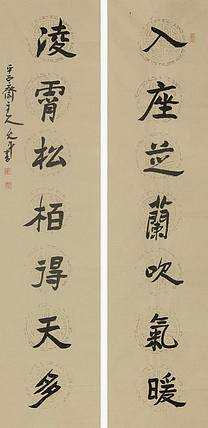 入座芝蘭吹氣暖
淩霄松栢得天多
齋主人